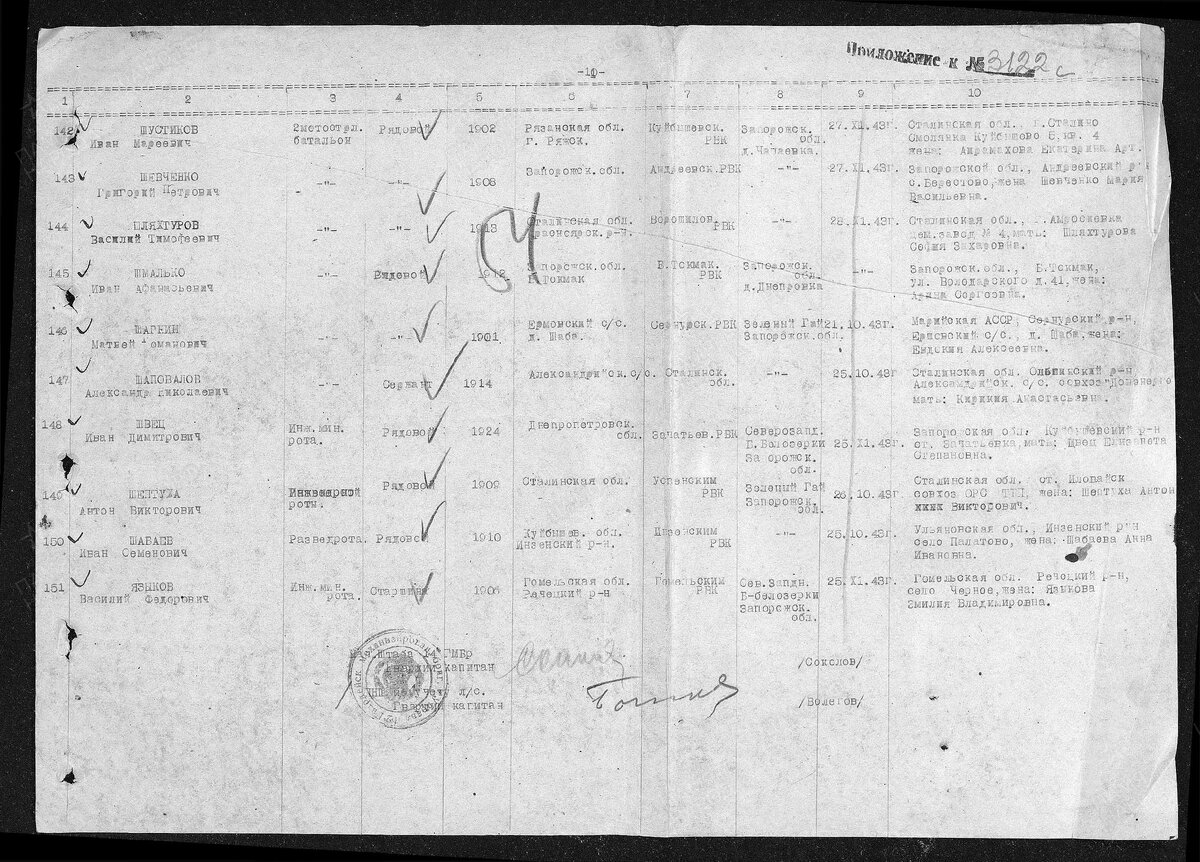 Приложение к №3122 с
-10-
1 2 3 4 5 6 7 8 9 10
142 ШУСТИКОВ 2мотострл. Рядовой 1902 Рязанская обл. Куйбышевск. Запорожск. 27.XI.43г. Сталинская обл., г.Сталино
Иван Мареевич батальон г. Ряжск. РВК обл. Смолянка Куйбышево Б.кв. 4
д.Чапаевка. жена: Айрамахова Екатерина Арт.
143 ШЕВЧЕНКО -"- -"- 1908 Запорожск.обл. Андреевск.РВК -"- 27.XI.43г. Запорожской обл., Андреевский р-н
Григорий Петрович с.Берестово,жена Шевченко Мария
Васильевна.
144 ШЛЯХТУРОВ -"- -"- 1913 Сталинская обл. Ворошилов. -"- 28.XI.43г. Сталинская обл., г.Амвросиевка
Василий Тимофеевич Красноярск.р-н. РВК цем.завод № 4,мать: Шляхтурова
София Захаровна.
54
145 ШМАЛЬКО -"- Рядовой 1912 Запорожск.обл. Б.Токмак. Запорожск. -"- Запорожск.обл., Б.Токмак,
Иван Афанасьевич Б.Токмак РВК обл. ул. Володарского д.41,жена:
д.Днепровка Арина Сергеевна.
146 ШАРНИН -"- -"- 1901 Ермовский с/с. Сернурск.РВК Зеленый Гай 21.10.43г. Марийская АССР, Сернурский р-н,
Матвей Романович д. Шаба. Запорожск.обл. Ермовский с/с., д. Шаба.жена:
Евдокия Алексеевна.
147 ШАПОВАЛОВ -"- Сержант 1914 Александрийск.с/с. Сталинск. -"- 25.10.43г. Сталинская обл. Ольгинский р-н
Александр Николаевич обл. Александрийск. с/с. совхоз "Донэнерго
мать: Кирикия Анастасьевна.
148 ШВЕЦ Инж.мин. Рядовой 1924 Днепропетровск. Зачатьев.РВК Северозапд. 25.XI.43г. Запорожская обл. Куйбышевский р-н
Иван Димитрович рота. обл. Г.Белозерки ст. Зачатьевка,мать: Швец Елизавета
Запорожск. Степановна.
обл.
149 ШЕПТУХА Инженерной Рядовой 1909 Сталинская обл. Успенским Зеленый Гай 26.10.43г. Сталинская обл. ст. Иловайск
Антон Викторович роты. РВК Запорожск. совхоз ОРС ТПП, жена: Шептуха Антон
обл. хххх Викторович.
150 ШАБАЕВ Разведрота. Рядовой 1910 Куйбышев. обл. Инзенским -"- 25.10.43г. Ульяновская обл., Инзенский р-н
Иван Семенович Инзенский р-н. РВК село Палатово, жена: Шабаева Анна
Ивановна.
151 ЯЗЫКОВ Инж.мин. Старшина 1906 Гомельская обл. Гомельским Сев.Западн. 25.XI.43г. Гомельская обл. Речецкий р-н,
Василий Федорович рота. Речецкий р-н РВК Б-белозерки село Черное,жена: Языкова
Запорожск. Эмилия Владимировна.
обл.
Штаба ГМБр
Гвардии капитан /Соколов/
ПНШ по учету л/с.
Гвардии капитан /Волегов/